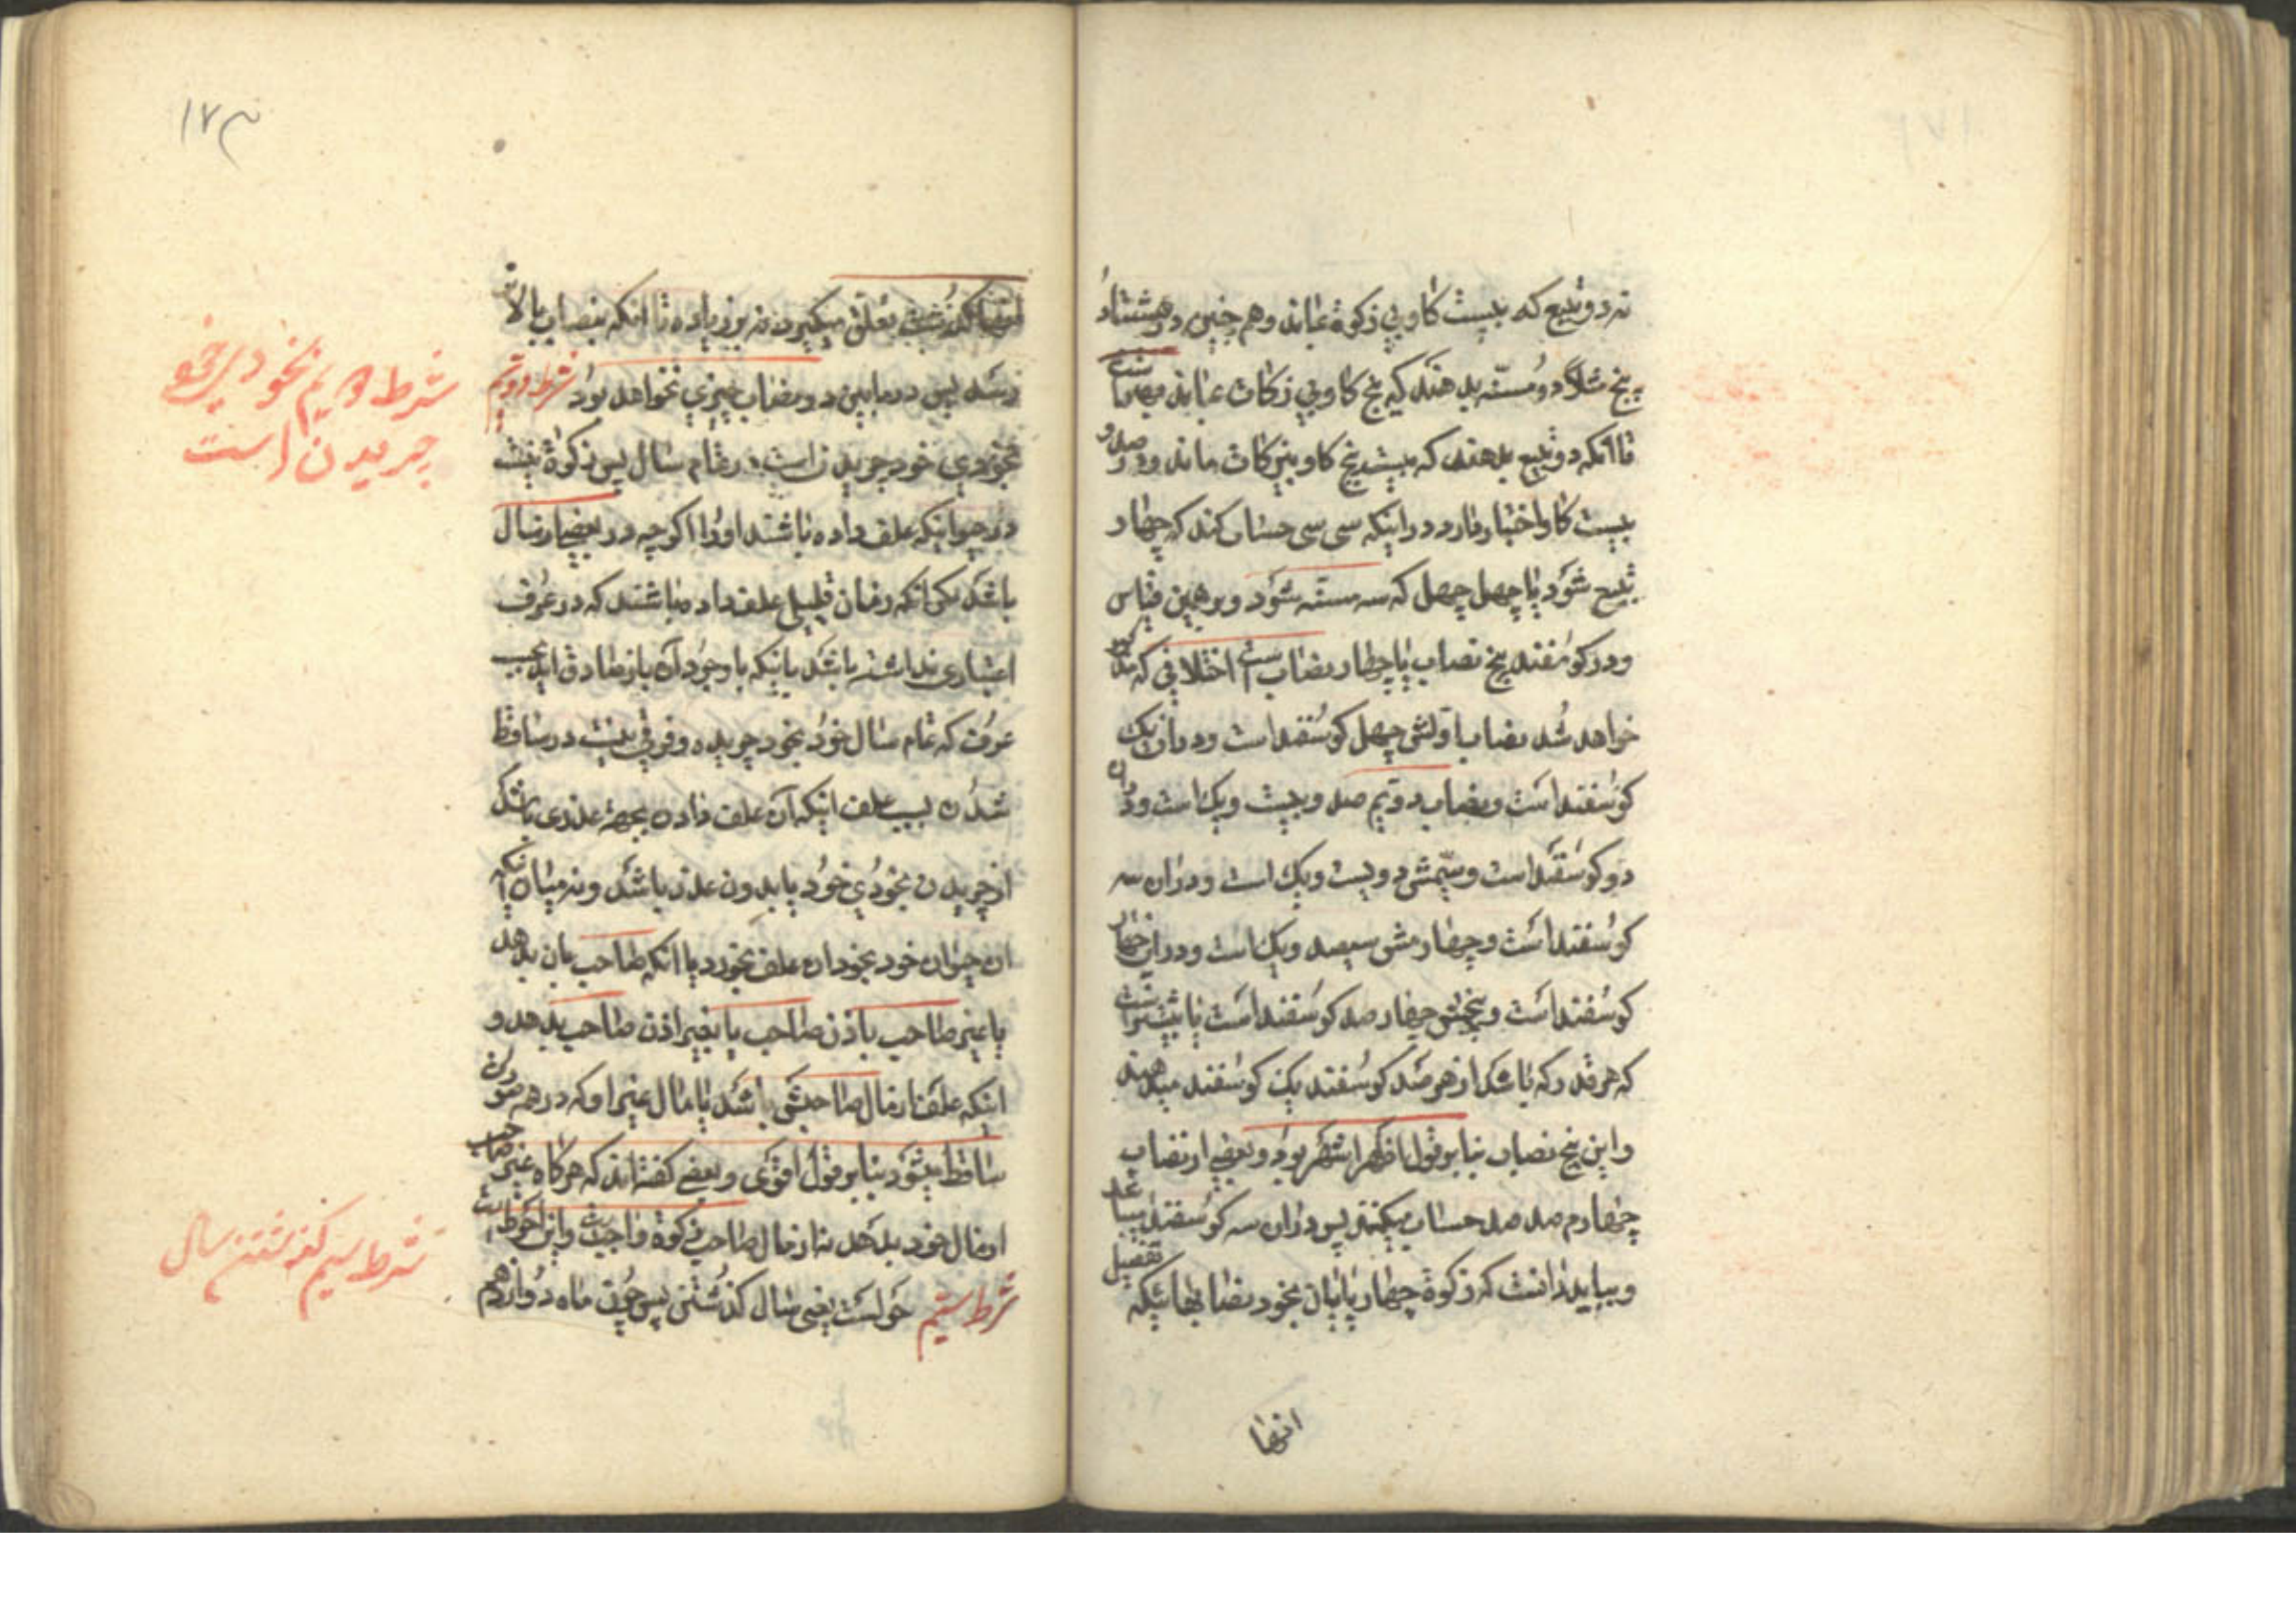 نه دو تبیع که بیست کاو بی زکوة عاند وهم چنین در هشتاد
پنج مثلا دو مسنه بدهند که پنج کاو بی زکات عاند بهتر است
تا انکه دو تبیع بدهند که بیست پنج کاو بیزکات ماند ودر صد و
بیست کاو اختیار دارد در اینکه سی سی حساب کند که چهار
تبیع شود یا چهل چهل که سه مسنه شود وبرهمین قیاس
ودر کوسفند پنج نصاب یا چهار نصاب است اختلافی که
خواهد شد نصاب اولش چهل کوسفند است ودر ان یک
کوسفند است ونصاب دویم صد وبیست ویک است ودر ان
دو کوسفند است وسیمش دویست ویک است ودران سه
کوسفند است وچهارمش سیصد ویک است ودران چهار
کوسفند است وپنجمش چهار صد کوسفند است یا بیشتر است
که هر قدر که باشد از هر صد کوسفند یک کوسفند میدهند
واین پنج نصاب بنابر قول اظهر اشهر بود وبعضی از نصاب
چهارم صد صد حساب میکنند پس دران سه کوسفند
وبباید دانست که زکوة چهار پایان بخود نصابهائیکه
تفصیل
انها
۱۷۳
انها کذشت تعلق میکیرد نه بر زیاده تا انکه بنصاب بالاتر
رسد پس در مابین دو نصاب چیزی نخواهد بود شرط دویم
بخودی خود چریدن است در تمام سال پس زکوة نیست
در حیوانیکه علف داده باشند او را اکرچه در بعضی از سال
باشد مکر انکه زمان قلیلی علف داده باشند که در عرف
اعتباری نداشته باشد یا اینکه با وجود آن باز صادق اید بحسب
عرف که تمام سال خود بخود چریده وفرقی نیست در ساقط
شدن بسبب علف اینکه آن علف دادن بجهة عذری باشد
از چریدن بخودی خود یا بدون عذر باشد ونه میان انکه
ان حیوان خود بخود ان علف بخورد یا انکه صاحب بان بدهد
یا غیر صاحب باذن صاحب یا بغیر اذن صاحب بدهد و
اینکه علف از مال صاحبش باشد یا مال غیر او که در همه صورت
ساقط میشود بنابر قول اقوی وبعضی کفته اند که هرکاه غیر صاحب
از مال خود بدهد نه از مال صاحب زکوة واجبست واین احوط است
شرط سیم حولست یعنی سال کذشتن پس چون ماه دوازدهم
شرط دویم بخودی خود
چریدن است
شرط سیم کذشتن سال